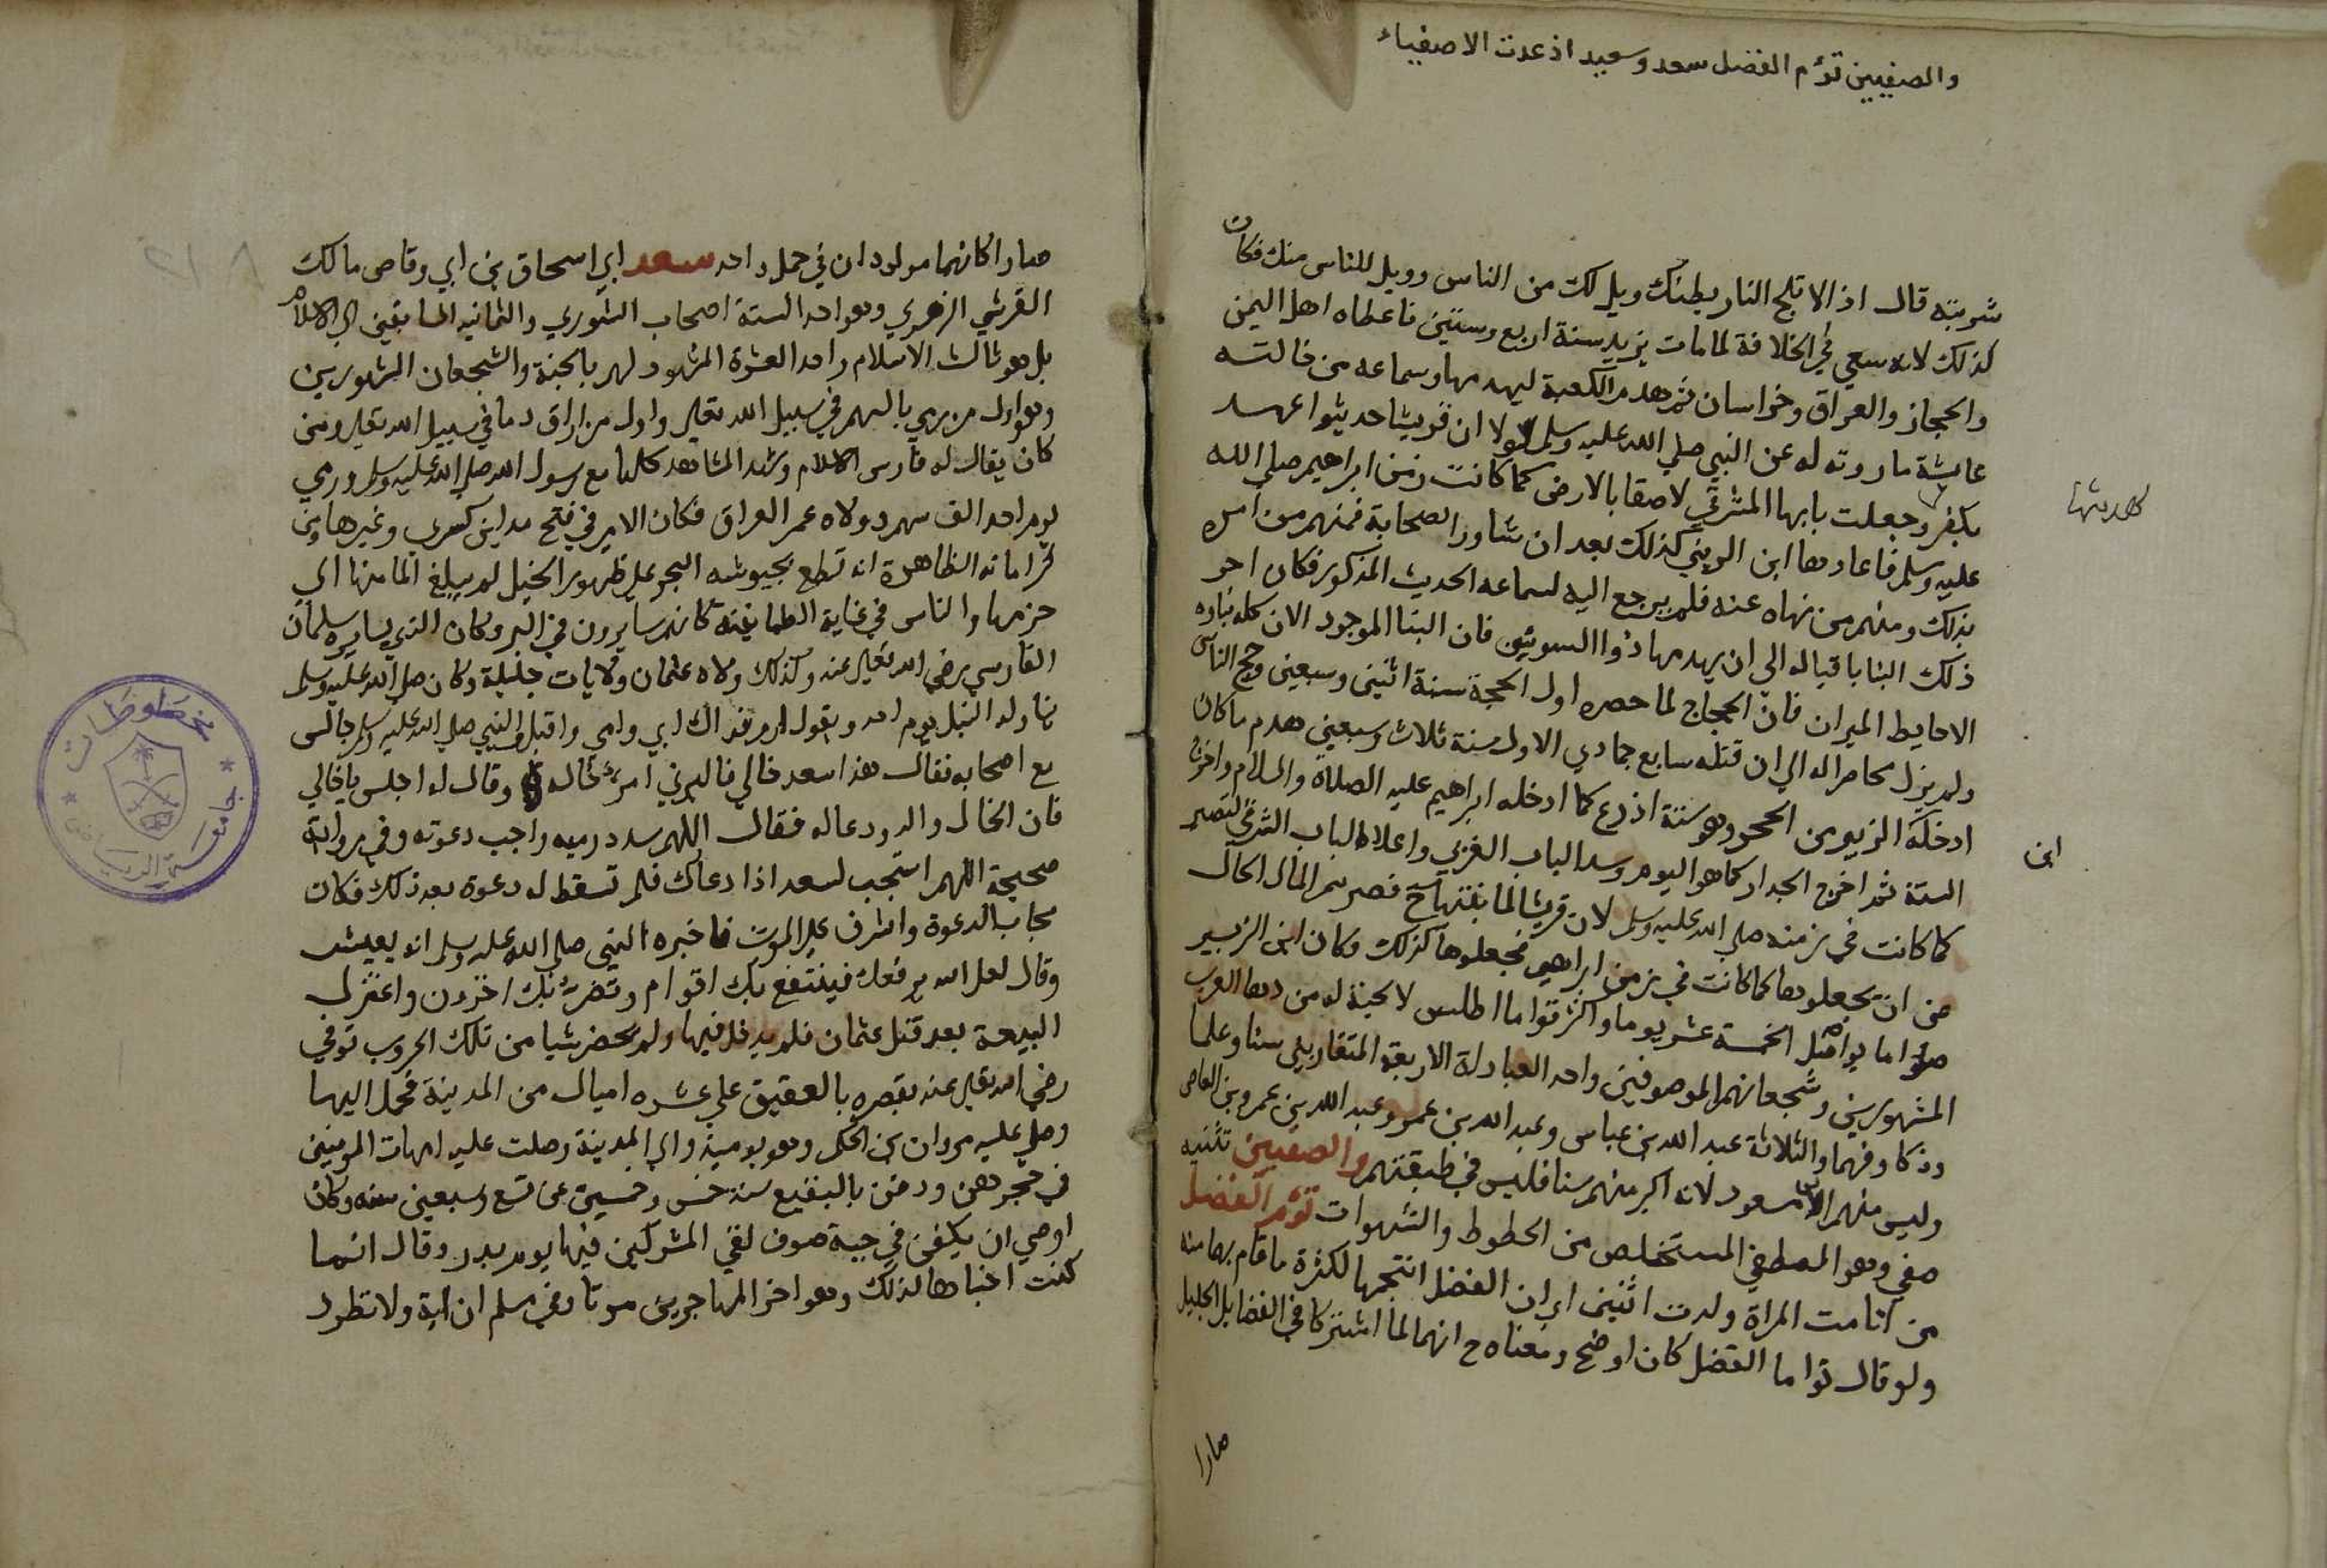 والصفيين توءم الفضل سعد وسعيد اذ عدت الاصفياء
شربته قال اذا لا تلج النار بطنك ويل لك من الناس وويل للناس منك فكان
كذلك لانه سعي في الخلافة لما مات يزيد سنة اربع وستين فاعطاه اهل اليمن
والحجاز والعراق وخراسان ثم هدم الكعبة ليهدمها وسماعه من خالته
عايشة ما روته له عن النبي صلي الله عليه وسلم لولا ان قريشا حديثوا عهد
بكفر وجعلت بابها الشرقي لاصقا بالارض كما كانت زمن ابراهيم صلي الله
لهدمتها
عليه وسلم فاعادها ابن الزبير كذلك بعد ان شاور الصحابة فمنهم من امره
بذلك ومنهم من نهاه عنه فلم يرجع اليه لسماعه الحديث المذكور فكان اجر
ذلك البنا باقيا له الي ان يهدمها ذوا السويقتين فان البنا الموجود الان كله بناوه
الا حايط الميزان فان الحجاج لما حصره اول الحجة سنة اثنين وسبعين وحج الناس
ولم يزل محاصرا له الي ان قتله سابع جمادي الاول سنة ثلاث وسبعين هدم ما كان
ادخله الزبير من الحجر وهو ستة اذرع كما ادخله ابراهيم عليه الصلاة والسلام واخرج
ابن
الستة ثم اخرج الجدار كما هو اليوم وسد الباب الغربي واعلا الباب الشرقي لتصير
كما كانت في زمنه صلي الله عليه وسلم لان قريشا لما بنتها ح قصر بهم المال الحلال
من ان يجعلوها كما كانت في زمن ابراهيم فجعلوها كذلك وكان ابن الزبير
صواما يواصل الخمسة عشر يوما واكثر قواما اطلس لا لحية له من دهاة العرب
المشهورين وشجعانهم الموصوفين واحد العبادلة الاربعة المتقاربين سنا وعلما
وذكا وفهما والثلاثة عبد الله بن عباس وعبد الله بن عمر وعبد الله بن عمرو بن العاص
وليس منهم ابن مسعود لانه اكبر منهم سنا فليس في طبقتهم والصفيين تثنيه
صفي وهو المصطفي المستخلص من الحظوظ والشهوات توءم الفضل
من اتامت المراة ولدت اثنين اي ان الفضل انتجهما لكثرة ما قام بهما منه
ولو قال توأما الفضل كان اوضح ومعناه ح انهما لما اشتركا في الفضايل الجليل
صارا
صارا كانهما مولودان في حمل واحد سعد ابي اسحاق بن ابي وقاص مالك
القرشي الزهري وهو احد الستة اصحاب الشوري والثمانيه السابقين الي الاسلام
بل هو ثالث الاسلام واحد العشرة المشهود لهم بالجنة والشجعان المشهورين
وهو اول من رمي بالسهم في سبيل الله تعالي واول من اراق دما في سبيل الله تعالي ومن
كان يقال له فارس الاسلام وشهد المشاهد كلها مع رسول الله صلي الله عليه وسلم ورمي
يوم احد الف سهم وولاه عمر العراق فكان الامير في فتح مداين كسري وغيرها ومن
كراماته الظاهرة انه قطع بجيوشه البحر علي ظهور الخيل لم يبلغ الما منها الي
حزمها والناس في غاية الطمانينة كانهم سايرون في البر وكان الذي يسايره سلمان
الفارسي رضي الله تعالي عنه وكذلك ولاه عثمان ولايات جليلة وكان صلي الله عليه وسلم
يناوله النبل يوم احد ويقول ارم فداك ابي وامي واقبل والنبي صلي الله عليه وسلم جالس
مع اصحابه فقال هذا سعد خالي فاليرني امرؤ خاله وقال له اجلس يا خالي
فان الخال والد ودعا له فقال اللهم سدد رميه واجب دعوته وفي رواية
صحيحة اللهم استجب لسعد اذا دعاك فلم تسقط له دعوة بعد ذلك فكان
مجاب الدعوة واشرف علي الموت فاخبره النبي صلي الله عليه وسلم انه يعيش
وقال لعل الله يرفعك فينتفع بك اقوام وتضر بك اخرون واعتزل
البيعة بعد قتل عثمان فلم يدخل فيها ولم يحضر شيا من تلك الحروب توفي
رضي الله تعالي عنه بقصره بالعقيق علي عشره اميال من المدينة فحمل اليها
وصلي عليه مروان بن الحكم وهو يوميذ والي المدينة وصلت عليه امهات المومنين
في حجرهن ودفن بالبقيع سنة خمس وخمسين عن تسع وسبعين سنه وكان
اوصي ان يكفن في جبة صوف لقي المشركين فيها يوم بدر وقال انما
كنت اخباها لذلك وهو اخر المهاجرين موتا وفي مسلم ان اية ولا تطرد
مخطوطات
جامعة الرياض